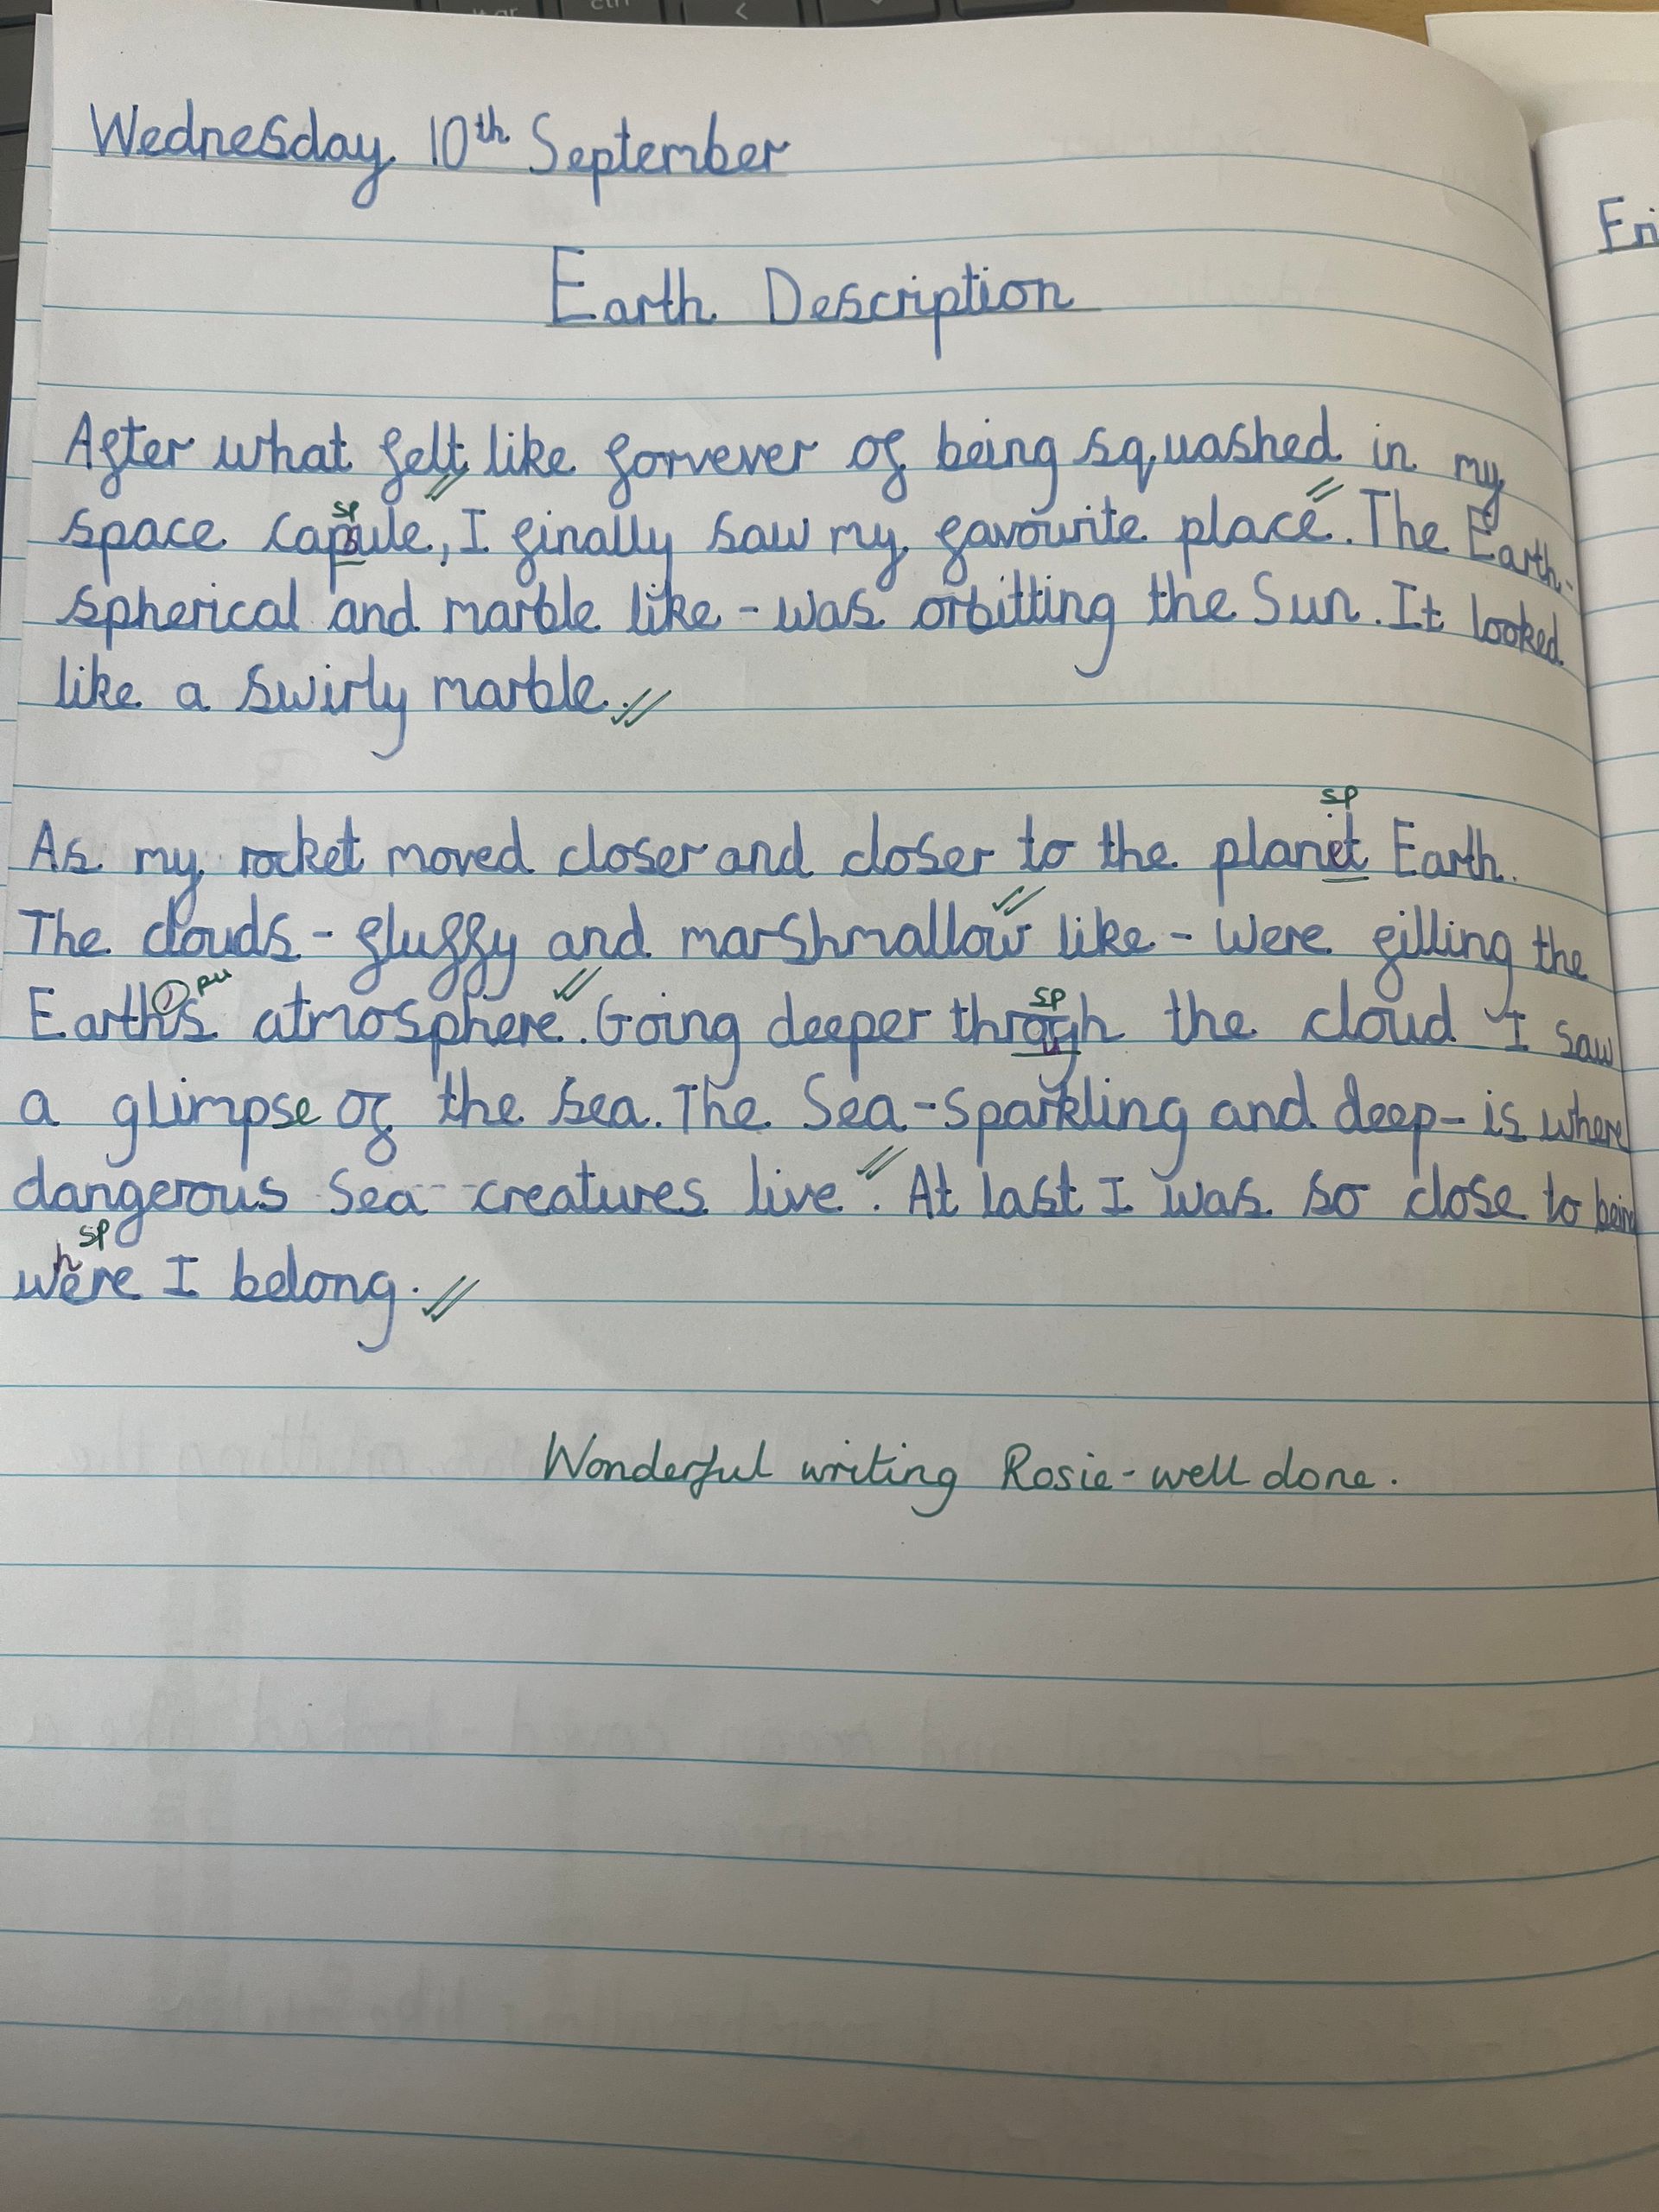 Wednesday 10th September
Earth Description
After what felt like forvever of being squashed in my
sp
space capule, I finally saw my favourite place. The Earth -
spherical and marble like - was orbitting the Sun. It looked
like a swirly marble.
sp
As my rocket moved closer and closer to the planet Earth.
The clouds - fluffy and marshmallow like - were filling the
pu
sp
Earth's atmosphere. Going deeper through the cloud I saw
a glimpse of the sea. The Sea - sparkling and deep - is where
dangerous sea creatures live. At last I was so close to being
sp
where I belong.
Wonderful writing Rosie - well done.